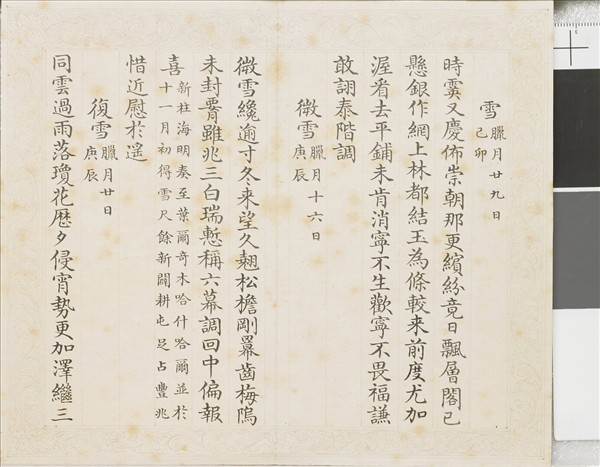 雪 臘月廿九日
己卯
時霙又慶佈崇朝那更繽紛竟日飄層閣已
懸銀作網上林都結玉為條較来前度尤加
渥看去平鋪未肯消寧不生歡寧不畏福謙
敢詡泰階調
微雪 臘月十六日
庚辰
微雪纔逾寸久来望久翹松檐剛羃齒梅隖
未封雖兆三白瑞慙稱六幕調回中偏報
喜 新柱海明奏至葉爾奇木哈什哈爾並於
十一月初得雪尺餘新闢耕屯足占豐兆
惜近慰於遙
復雪 臘月廿日
庚辰
同雲過雨落瓊花歷夕侵宵勢更加澤繼三